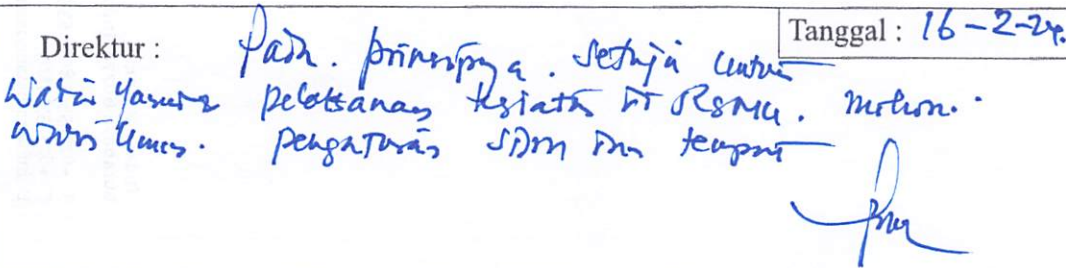 Direktur : Pada. prinsipnya. setuju untuk
Tanggal : 16-2-24.
pelaksanaan kegiatan di RSMU. mohon.
pengaturan SDM dan tempat